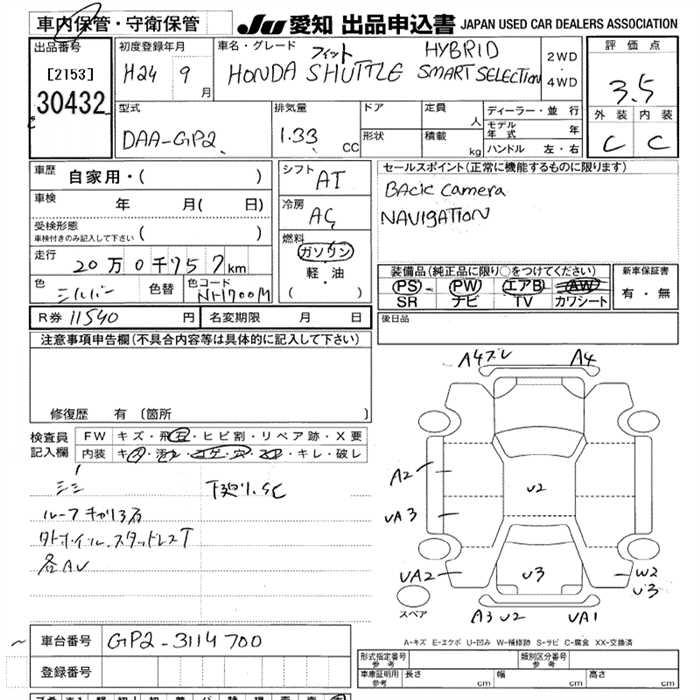 車内保管・守衛保管
JU 愛知 出品申込書 JAPAN USED CAR DEALERS ASSOCIATION
出品番号
[2153]
30432
初度登録年月
H24 9月
車名・グレード
フィット
HONDA SHUTTLE HYBRID SMART SELECTION
2WD
4WD
評価点
3.5
外装 内装
C C
型式
DAA-GP2
排気量
1.33 CC
ドア
形状
定員 人
積載 kg
ディーラー・並行
モデル年式 年
ハンドル 左・右
車歴 自家用・( )
車検 年 月( 日)
受検形態
車検付きのみ記入して下さい ( )
走行
20万0千757km
色 シルバー
色替
色コード NH700M
シフト AT
冷房 AC
燃料
ガソリン
軽・油
( )
セールスポイント(正常に機能するものに限ります)
BACIC CAMERA
NAVIGATION
装備品(純正品に限り○をつけてください)
PS PW エアB AW
SR ナビ TV カワシート
新車保証書
有・無
R券 11540 円
名変期限 月 日
後日品
注意事項申告欄(不具合内容等は具体的に記入して下さい)
修復歴 有 〔箇所 〕
検査員記入欄
FW キズ・飛石・ヒビ割・リペア跡・X要
内装 キズ・汚れ・コゲ・穴・・キレ・破レ
ルーフ
スタッドレスT
各AU
A4ズレ A4
A2
U2
UA3
UA2
U3
W2
U3
A3 U2 UA1
スペア
A-キズ E-エクボ U-凹み W-補修跡 S-サビ C-腐食 XX-交換済
車台番号 GP2-3114700
登録番号
形式指定番号 参考
類別区分番号 参考
車庫証明用 参考 長さ cm 幅 cm 高さ cm